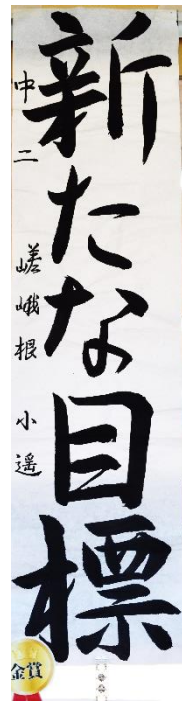 新たな目標
中二 嵯峨根 小遥
金賞